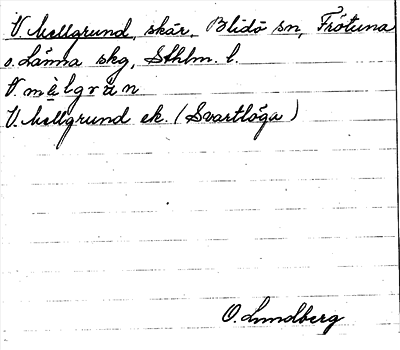 V. Mellgrund, skär, Blidö sn, Frötuna
o. Länna skg, Sthlm. l.
V. mèlgrún
V. Mellgrund ek. (Svartlöga)
O. Lundberg